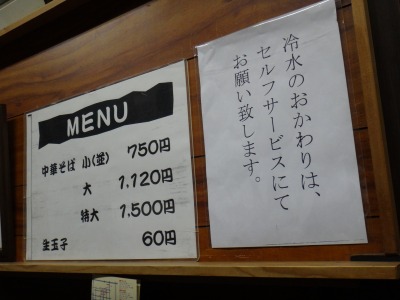 MENU
中華そば 小(並) 750円
大 1,120円
特大 1,500円
生玉子 60円
冷水のおかわりは、
セルフサービスにて
お願い致します。